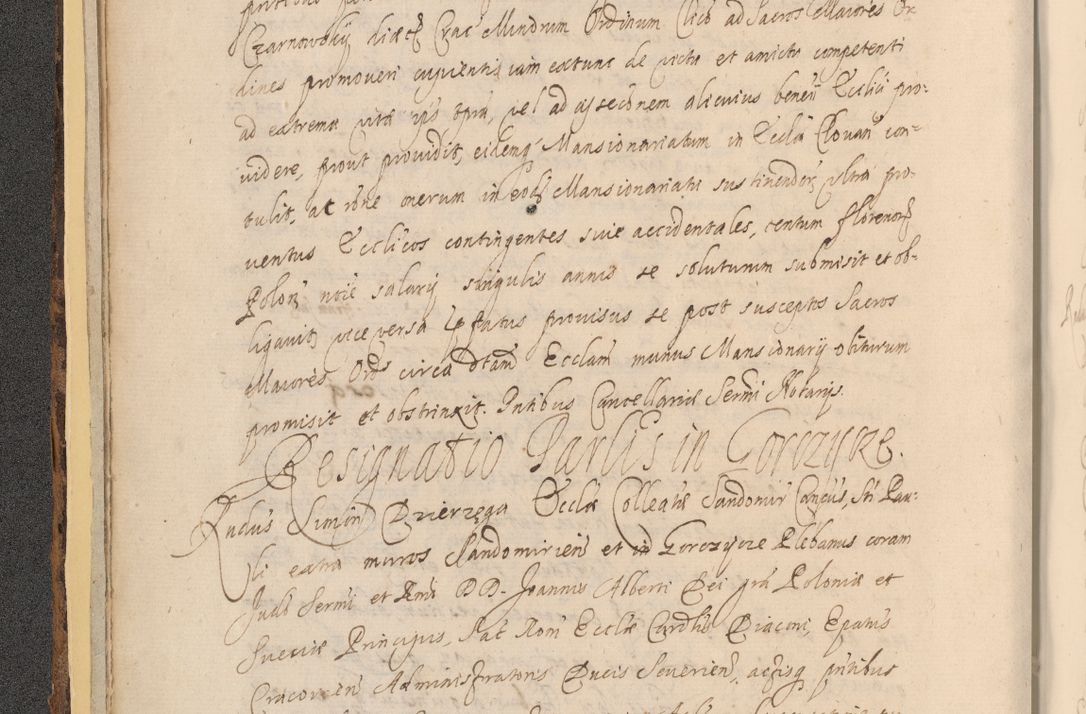 Czarnowskij diæc Crac Minorum Ordinum Clico ad Sacros Maiores Or-
dines promoveri cupientis iam extunc de victu et amictu competenti
ad extrema vitæ ipsi tpra, vel ad assecõnem alicuius beneii Ecclici pro-
videre, prout providit, eidemq Mansionariatum in Eccla Clovan con-
tulit, ac rõne onerum in eod Mansionariatu sustinendor, ultra pro-
ventus Ecclicos contingentes sive accidentales, centum florenor
Polon ntie salarij singulis annis se soluturum submisit et ob-
ligavit, vice versa pfatus provisus se post susceptos Sacros
Maiores Ord circa dtam Ecclam munus Mansionarij obiturum
promisit et obstrinxit. Pntibus Cancellariæ Sermi Notarijs.
Resignatio Parlis in Gorzyce.
Rndus Simon Dzierzęga Ecclæ Collegiatæ Sandomir Canicus, Sti Pau-
li extra muros Sandomirien et in Gorczyce Plebanus coram
Judi Sermi et Rmi DD. Joannis Alberti Dei gra Poloniæ et
Sueciæ Principis, Sac Rom Ecclæ Cardlis Diaconi, Epatus
Cracovien Administratoris Ducis Severien, actisq pntibus